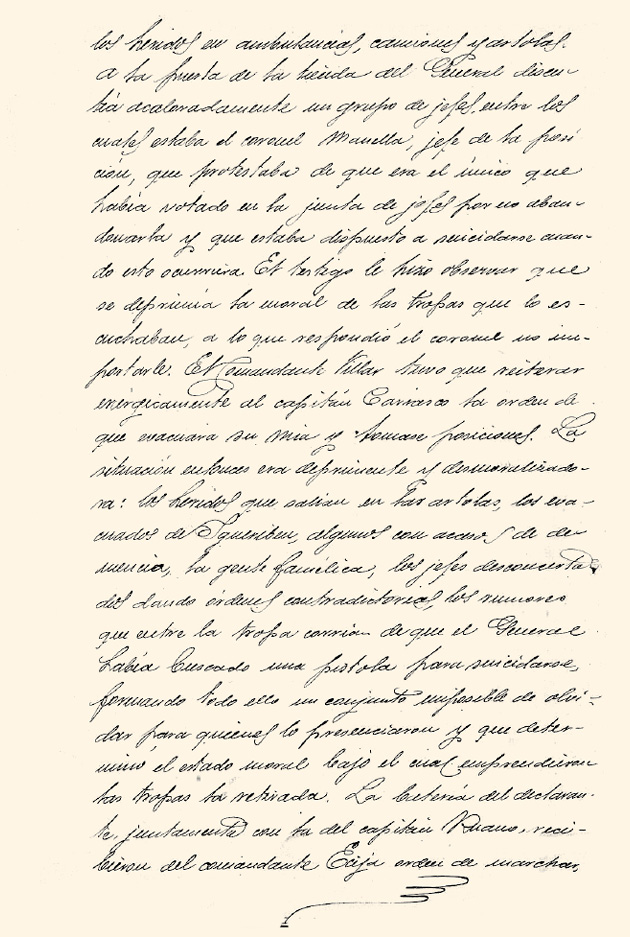 los heridos en ambulancias, camiones y artolas.
A la puerta de la tienda del General discu-
tía acaloradamente un grupo de jefes, entre los
cuales estaba el coronel Manella, jefe de la posi
ción, que protestaba de que era el único que
había votado en la junta de jefes por no aban-
donarla y que estaba dispuesto a suicidarse cuan-
do esto ocurriera. El testigo le hizo observar que
se deprimía la moral de las tropas que lo es-
cuchaban, a lo que respondió el coronel no im-
portarle. El Comandante Villar tuvo que reiterar
enérgicamente al capitán Carrasco la orden de
que evacuara su mia y tomase posiciones. La
situación entonces era deprimente y desmoralizado-
ra: los heridos que salían en las artolas, los eva-
cuados de Igueriben, algunos con accesos de de-
mencia, la gente famélica, los jefes desconcerta
dos dando órdenes contradictorias, los rumores
que entre la tropa corrian de que el General
había buscado una pistola para suicidarse,
formando todo ello un conjunto imposible de olvi-
dar para quienes lo presenciaron y que deter-
minó el estado moral bajo el cual emprendieron
las tropas la retirada. La batería del declaran-
te, juntamente con la del capitán Ruano, reci-
bieron del comandante Ecija orden de marchar,